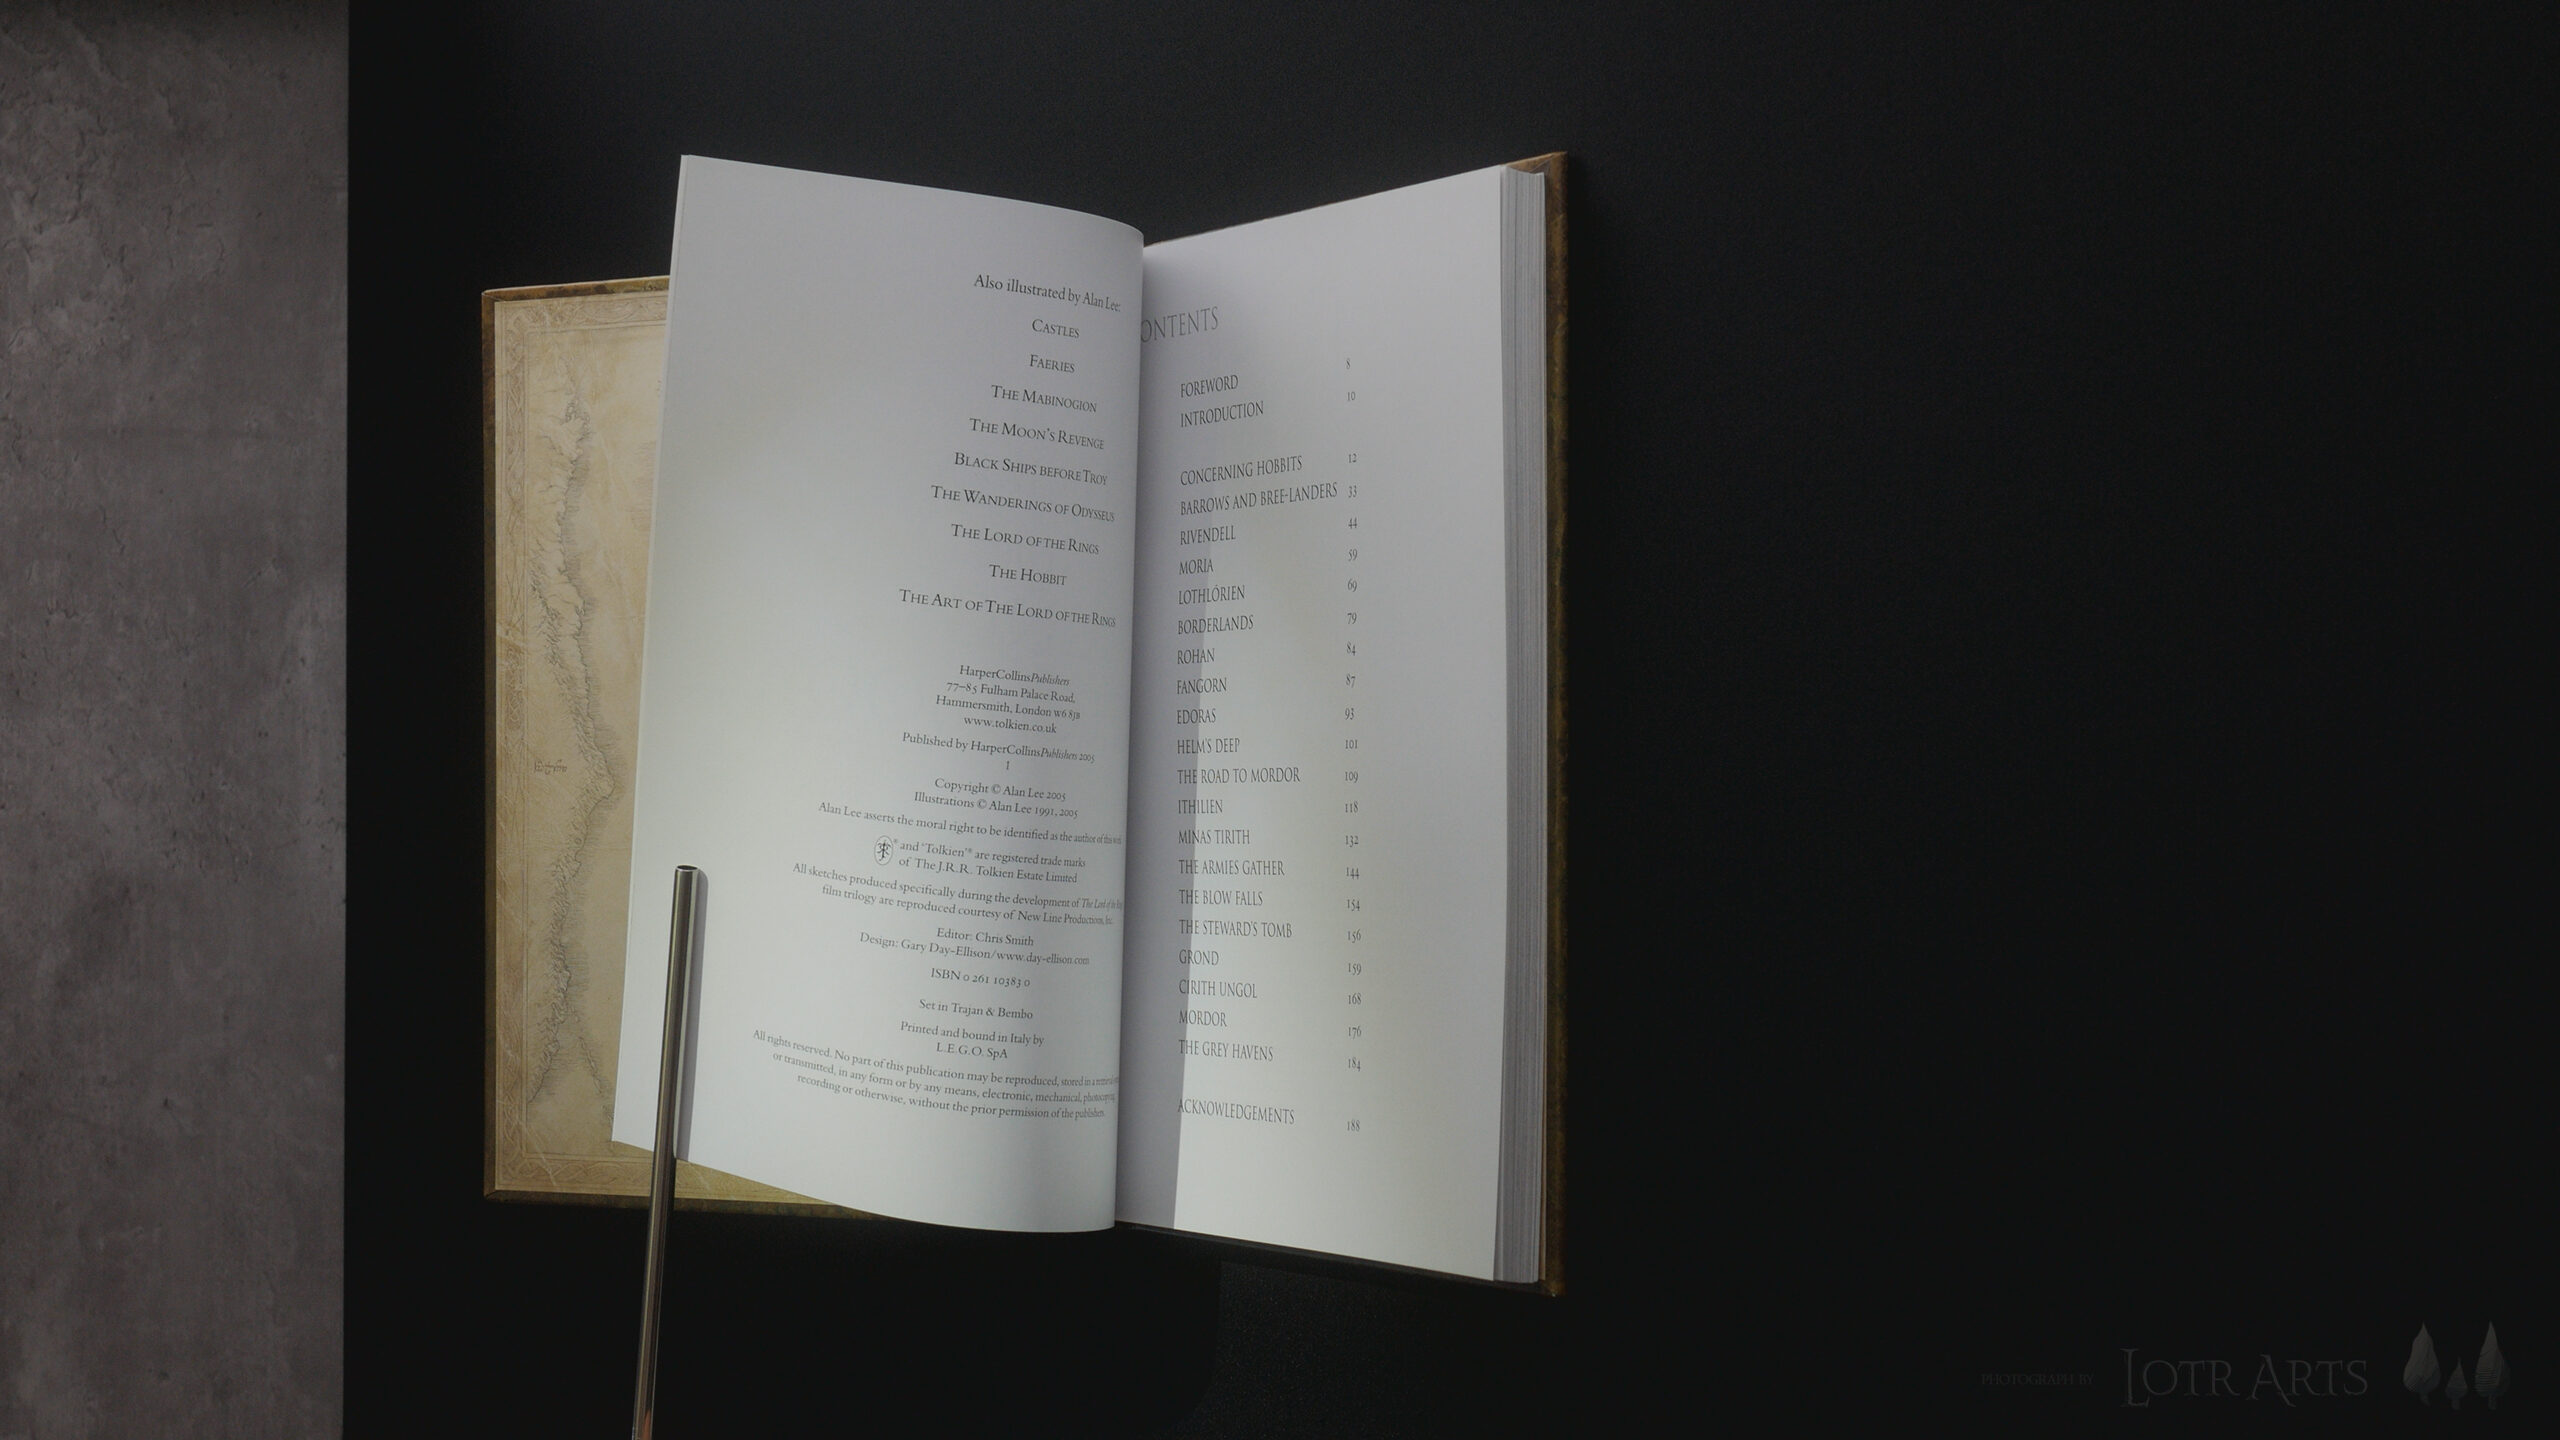 Also illustrated by Alan Lee:
CASTLES
FAERIES
THE MABINOGION
THE MOON'S REVENGE
BLACK SHIPS BEFORE TROY
THE WANDERINGS OF ODYSSEUS
THE LORD OF THE RINGS
THE HOBBIT
THE ART OF THE LORD OF THE RINGS
HarperCollinsPublishers
77–85 Fulham Palace Road,
Hammersmith, London W6 8JB
www.tolkien.co.uk
Published by HarperCollinsPublishers 2005
1
Copyright © Alan Lee 2005
Illustrations © Alan Lee 1991, 2005
Alan Lee asserts the moral right to be identified as the author of this work
® and ‘Tolkien’® are registered trade marks
of The J.R.R. Tolkien Estate Limited
All sketches produced specifically during the development of The Lord of the
film trilogy are reproduced courtesy of New Line Productions, Inc.
Editor: Chris Smith
Design: Gary Day-Ellison/www.day-ellison.com
ISBN 0 261 10383 0
Set in Trajan & Bembo
Printed and bound in Italy by
L.E.G.O. SpA
All rights reserved. No part of this publication may be reproduced, stored in a
or transmitted, in any form or by any means, electronic, mechanical, photocopying,
recording or otherwise, without the prior permission of the publishers.
ONTENTS
FOREWORD 8
INTRODUCTION 10
CONCERNING HOBBITS 12
BARROWS AND BREE-LANDERS 33
RIVENDELL 44
MORIA 59
LOTHLÓRIEN 69
BORDERLANDS 79
ROHAN 84
FANGORN 87
EDORAS 93
HELM'S DEEP 101
THE ROAD TO MORDOR 109
ITHILIEN 118
MINAS TIRITH 132
THE ARMIES GATHER 144
THE BLOW FALLS 154
THE STEWARD'S TOMB 156
GROND 159
CIRITH UNGOL 168
MORDOR 176
THE GREY HAVENS 184
ACKNOWLEDGEMENTS 188
PHOTOGRAPH BY LOTR ARTS